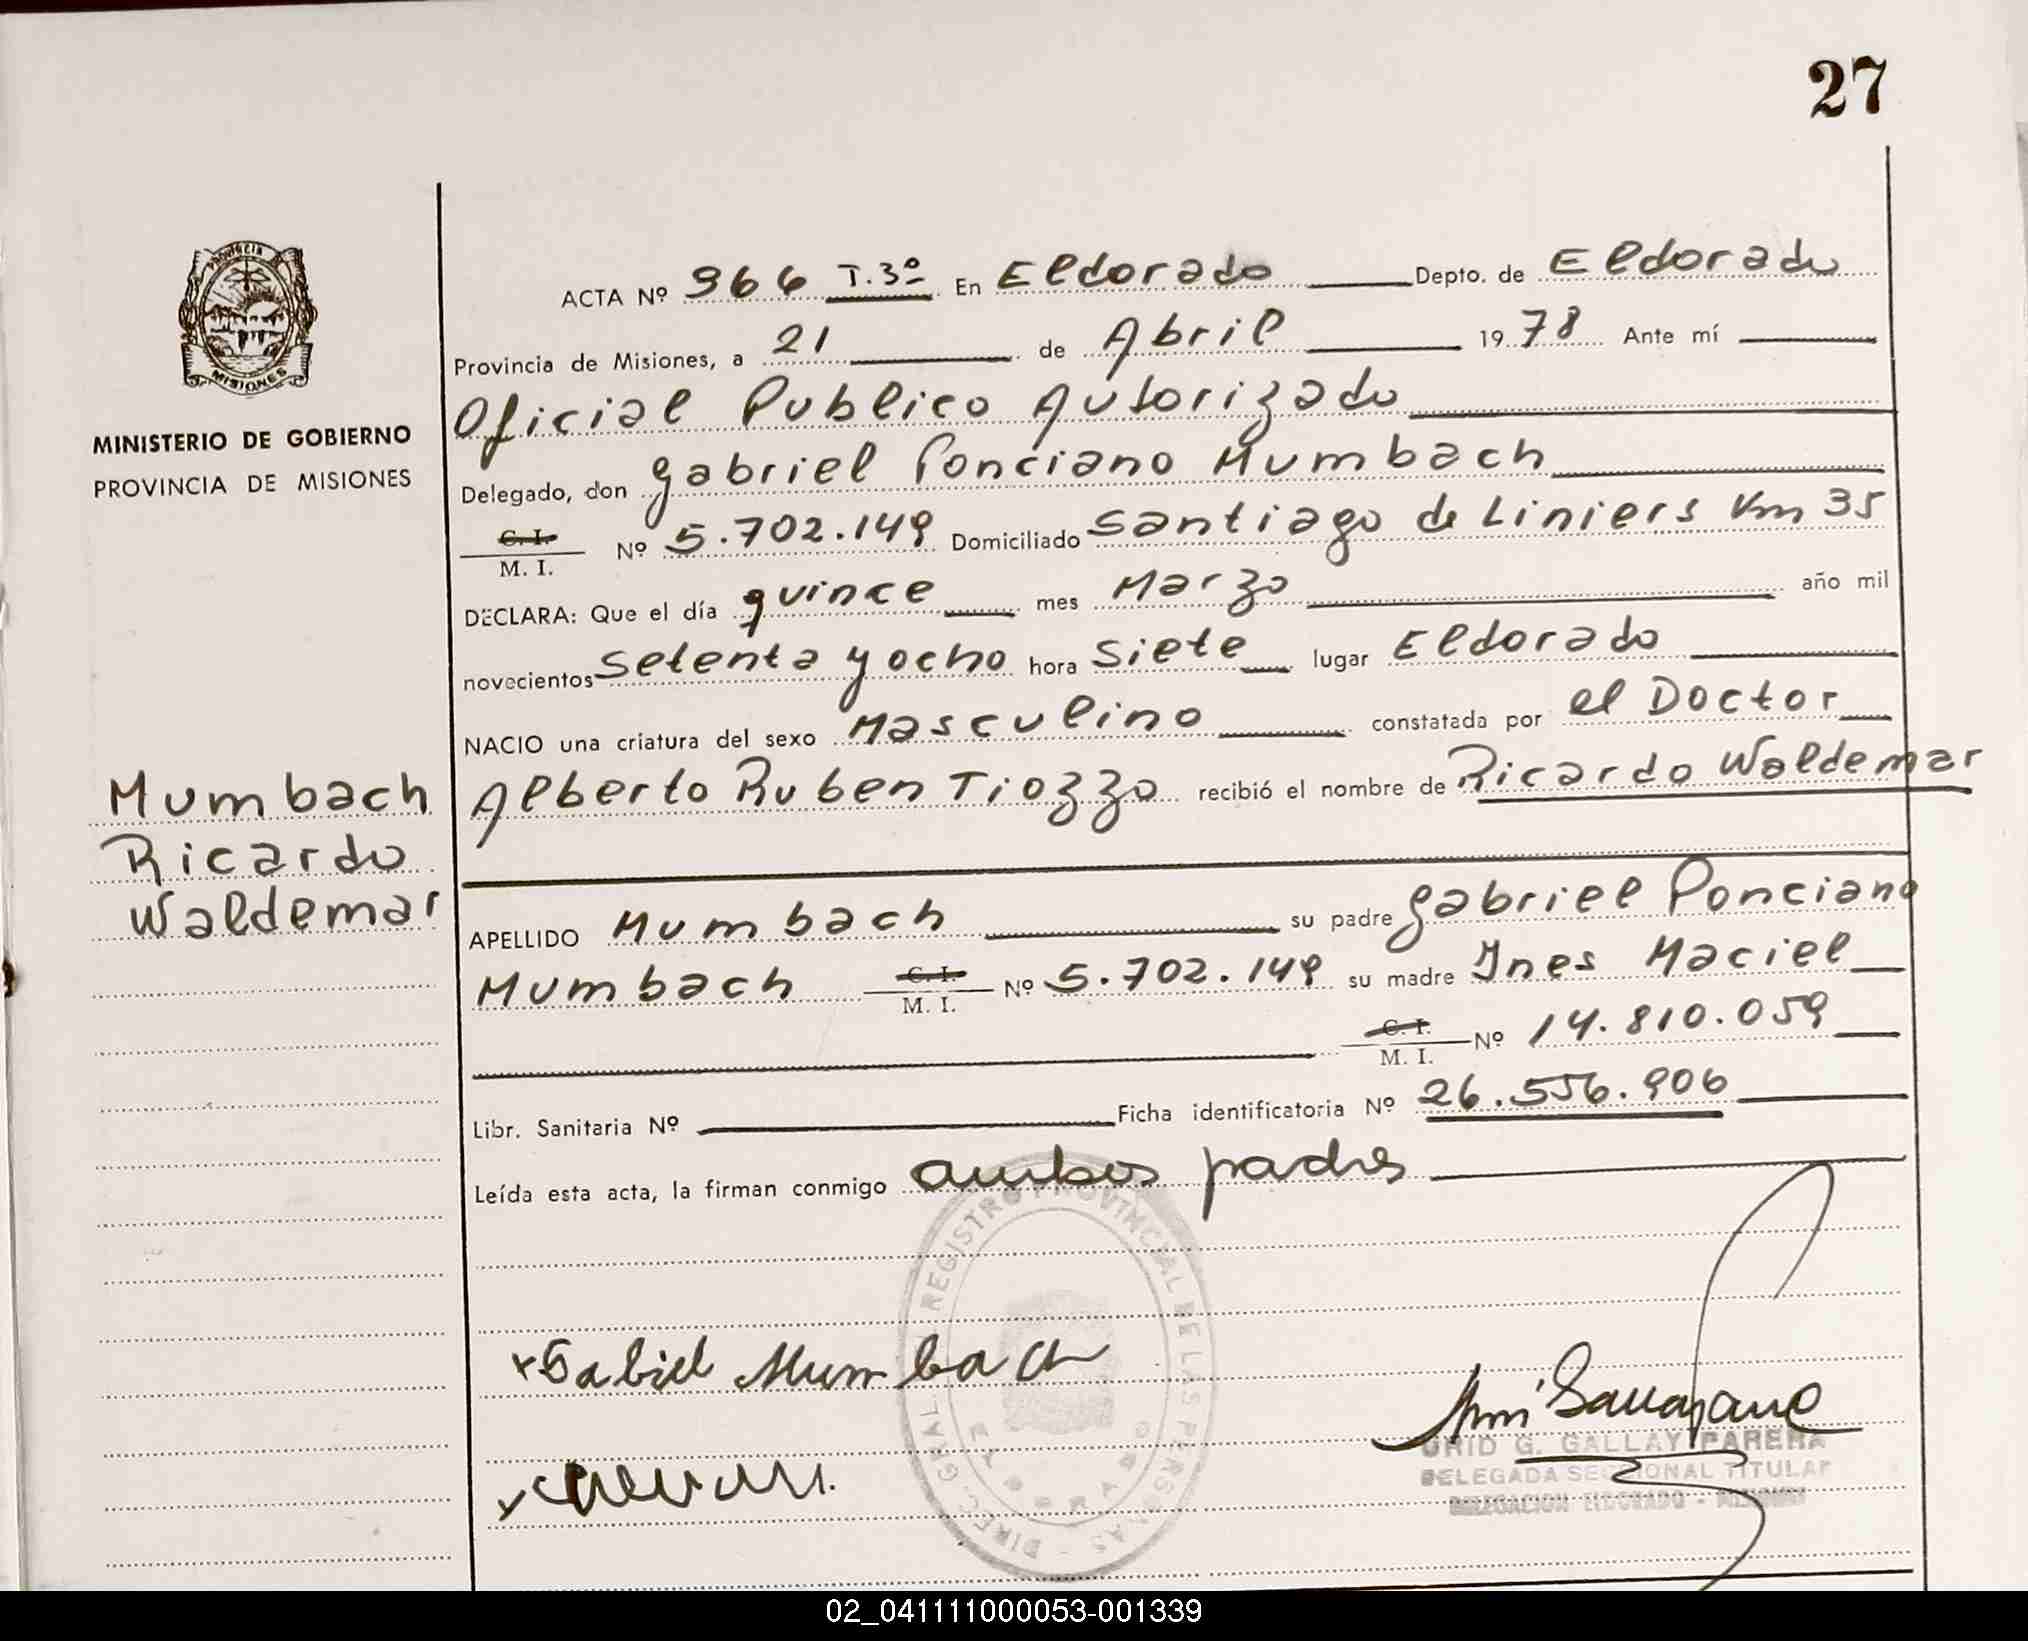 27
PROVINCIA
MISIONES
MINISTERIO DE GOBIERNO
PROVINCIA DE MISIONES
Mumbach
Ricardo
Waldemar
ACTA Nº 966 T.3º En Eldorado Depto. de Eldorado
Provincia de Misiones, a 21 de Abril 1978 Ante mí
Oficial Publico Autorizado
Delegado, don Gabriel Ponciano Mumbach
C. I.
M. I. Nº 5.702.149 Domiciliado Santiago de Liniers Km 35
DECLARA: Que el día quince mes Marzo año mil
novecientos setenta y ocho hora siete lugar Eldorado
NACIO una criatura del sexo Masculino constatada por el Doctor
Alberto Ruben Tiozzo recibió el nombre de Ricardo Waldemar
APELLIDO Mumbach su padre Gabriel Ponciano
Mumbach C. I. M. I. Nº 5.702.149 su madre Ines Maciel
C. I. M. I. Nº 14.810.059
Libr. Sanitaria Nº Ficha identificatoria Nº 26.556.906
Leída esta acta, la firman conmigo ambos padres
DIREC. GRAL. REGISTRO PROVINCIAL DE LAS PERSONAS
x Gabriel Mumbach
G. GALLAY PARERA
DELEGADA SECCIONAL TITULAR
DELEGACION ELDORADO - MISIONES
02_041111000053-001339